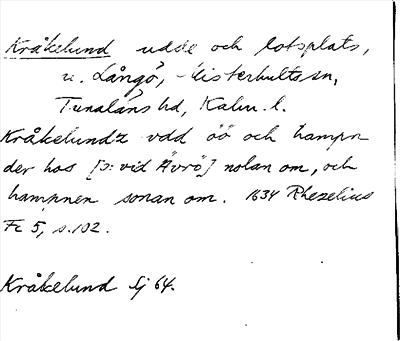 Kråkelund udde och lotsplats,
u. Långö, Misterhults sn,
Tunaläns hd, Kalm. l.
Kråkelundz vdd öö och hampn
der hos [ɔ: vid Ävrö] nolan om, och
hampnen sonan om. 1634 Rhezelius
Fc 5, s. 102.
Kråkelund Gj 64.